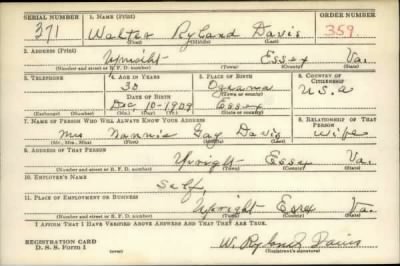 SERIAL NUMBER 1. NAME (Print) ORDER NUMBER
371 Walter Ryland Davis 359
(First) (Middle) (Last)
2. ADDRESS (Print)
Upright Essex Va.
(Number and street or R. F. D. number) (Town) (County) (State)
3. TELEPHONE 4. AGE IN YEARS 5. PLACE OF BIRTH 6. COUNTRY OF CITIZENSHIP
30
DATE OF BIRTH (Town or county)
Dec 10-1909 Essex U.S.A
(Exchange) (Number) (Mo.) (Day) (Yr.) (State or country)
7. NAME OF PERSON WHO WILL ALWAYS KNOW YOUR ADDRESS 8. RELATIONSHIP OF THAT PERSON
Mrs Nannie Gay Davis wife
(Mr., Mrs., Miss) (First) (Middle) (Last)
9. ADDRESS OF THAT PERSON
Upright Essex Va.
(Number and street or R. F. D. number) (Town) (County) (State)
10. EMPLOYER'S NAME
Self
11. PLACE OF EMPLOYMENT OR BUSINESS
Upright Essex Va.
(Number and street or R. F. D. number) (Town) (County) (State)
I AFFIRM THAT I HAVE VERIFIED ABOVE ANSWERS AND THAT THEY ARE TRUE.
REGISTRATION CARD
D. S. S. Form 1 W. Ryland Davis
(Registrant's signature)